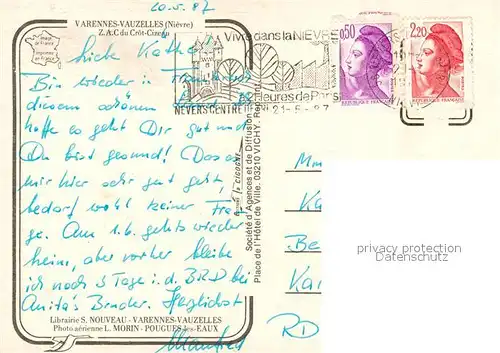 20.5.87
VARENNES-VAUZELLES (Nièvre)
Z.A.C du Crôt-Cizeau
Image de France
Imprimée en France
Vivre dans la NIEVRE
à 2 Heures de Paris
NEVERS CENTRE
21-5-87
0,50
2,20
REPUBLIQUE FRANÇAISE
Bin wieder in Frankreich
diesem schönen
hoffe es geht Dir gut und
Du bist gesund! Dass es
mir hier sehr gut geht,
bedarf wohl keiner Fra-
ge. Am 1.6. gehts wieder
heim, aber vorher bleibe
ich noch 3 Tage i.d. BRD bei
Anita's Bruder. Herzlichst
Manfred
Librairie S. NOUVEAU - VARENNES-VAUZELLES
Photo aérienne L. MORIN - POUGUES-les-EAUX
LA CIGOGNE
Société d'Agences et de Diffusion
Place de l'Hôtel de Ville. 03210 VICHY.
Mm
Ka
Be
Ka
privacy protection
DATENSCHUTZ